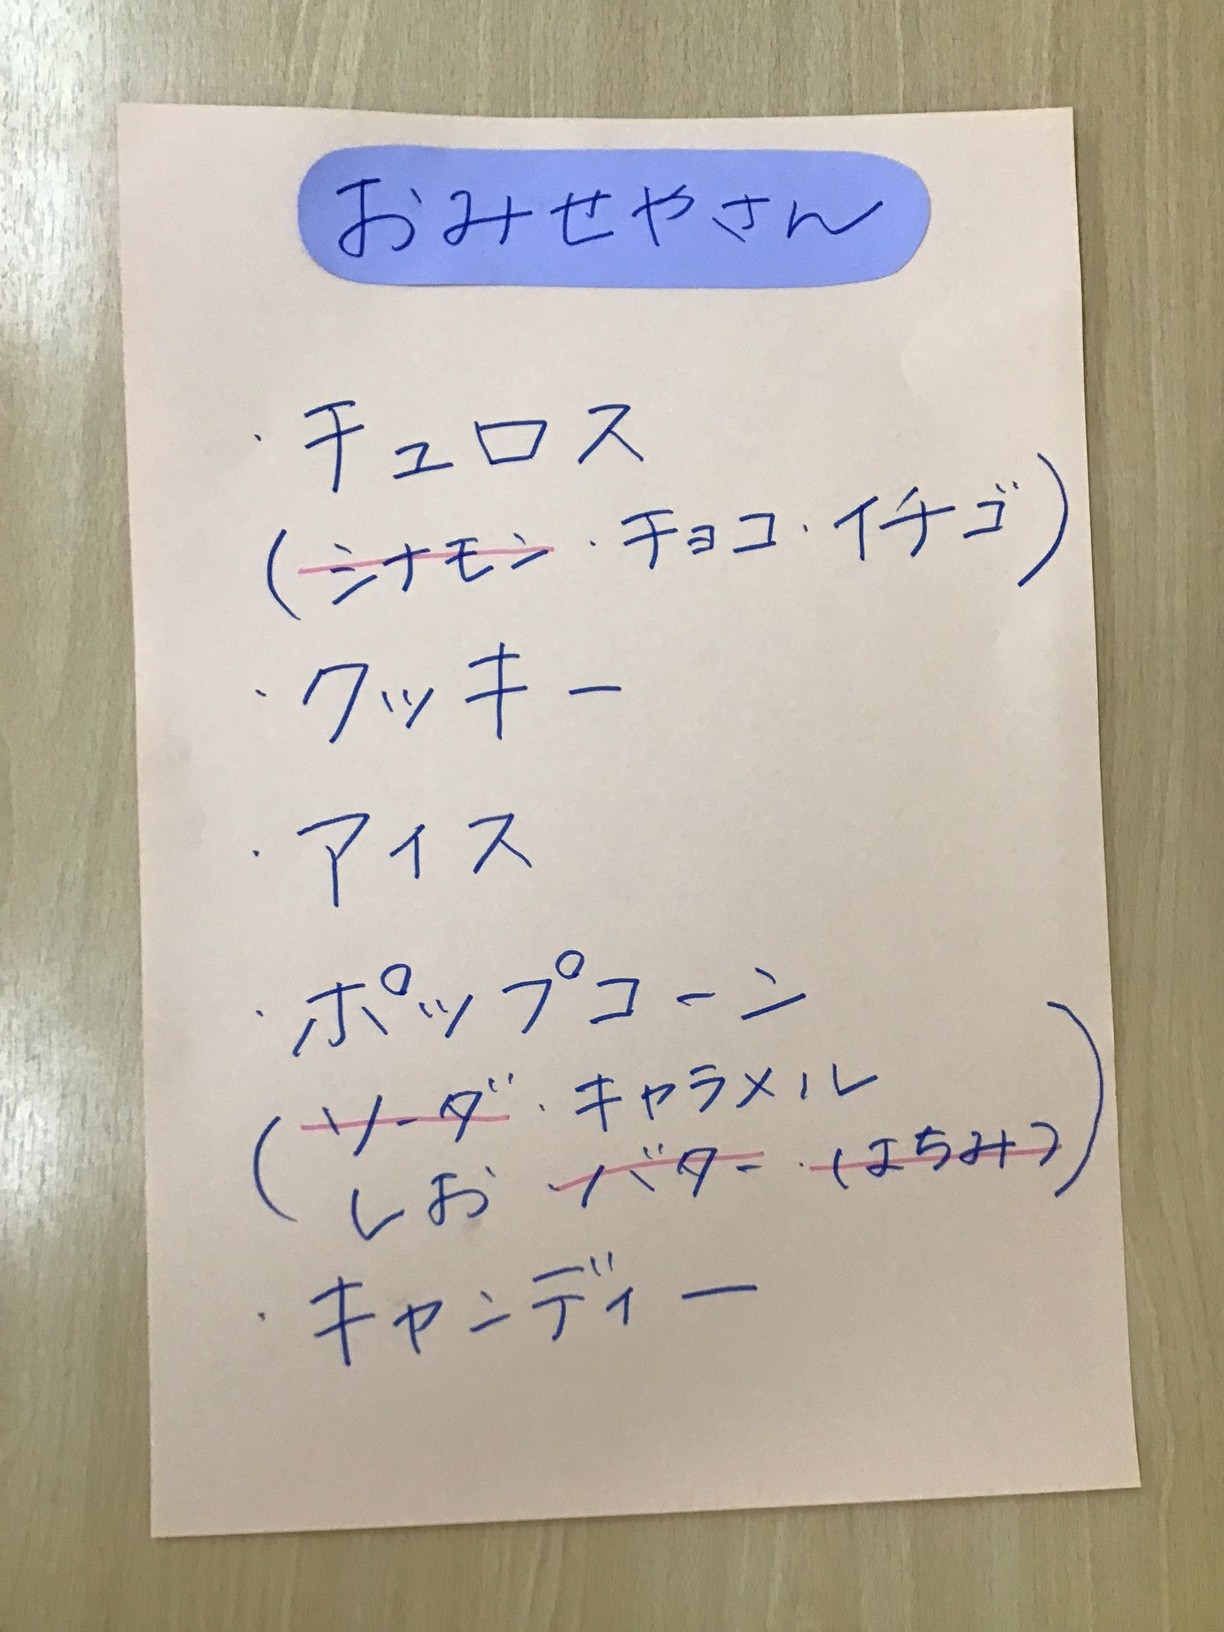 おみせやさん
・チュロス
(シナモン・チョコ・イチゴ)
・クッキー
・アイス
・ポップコーン
(ソーダ・キャラメル
しお バター・はちみつ)
・キャンディー